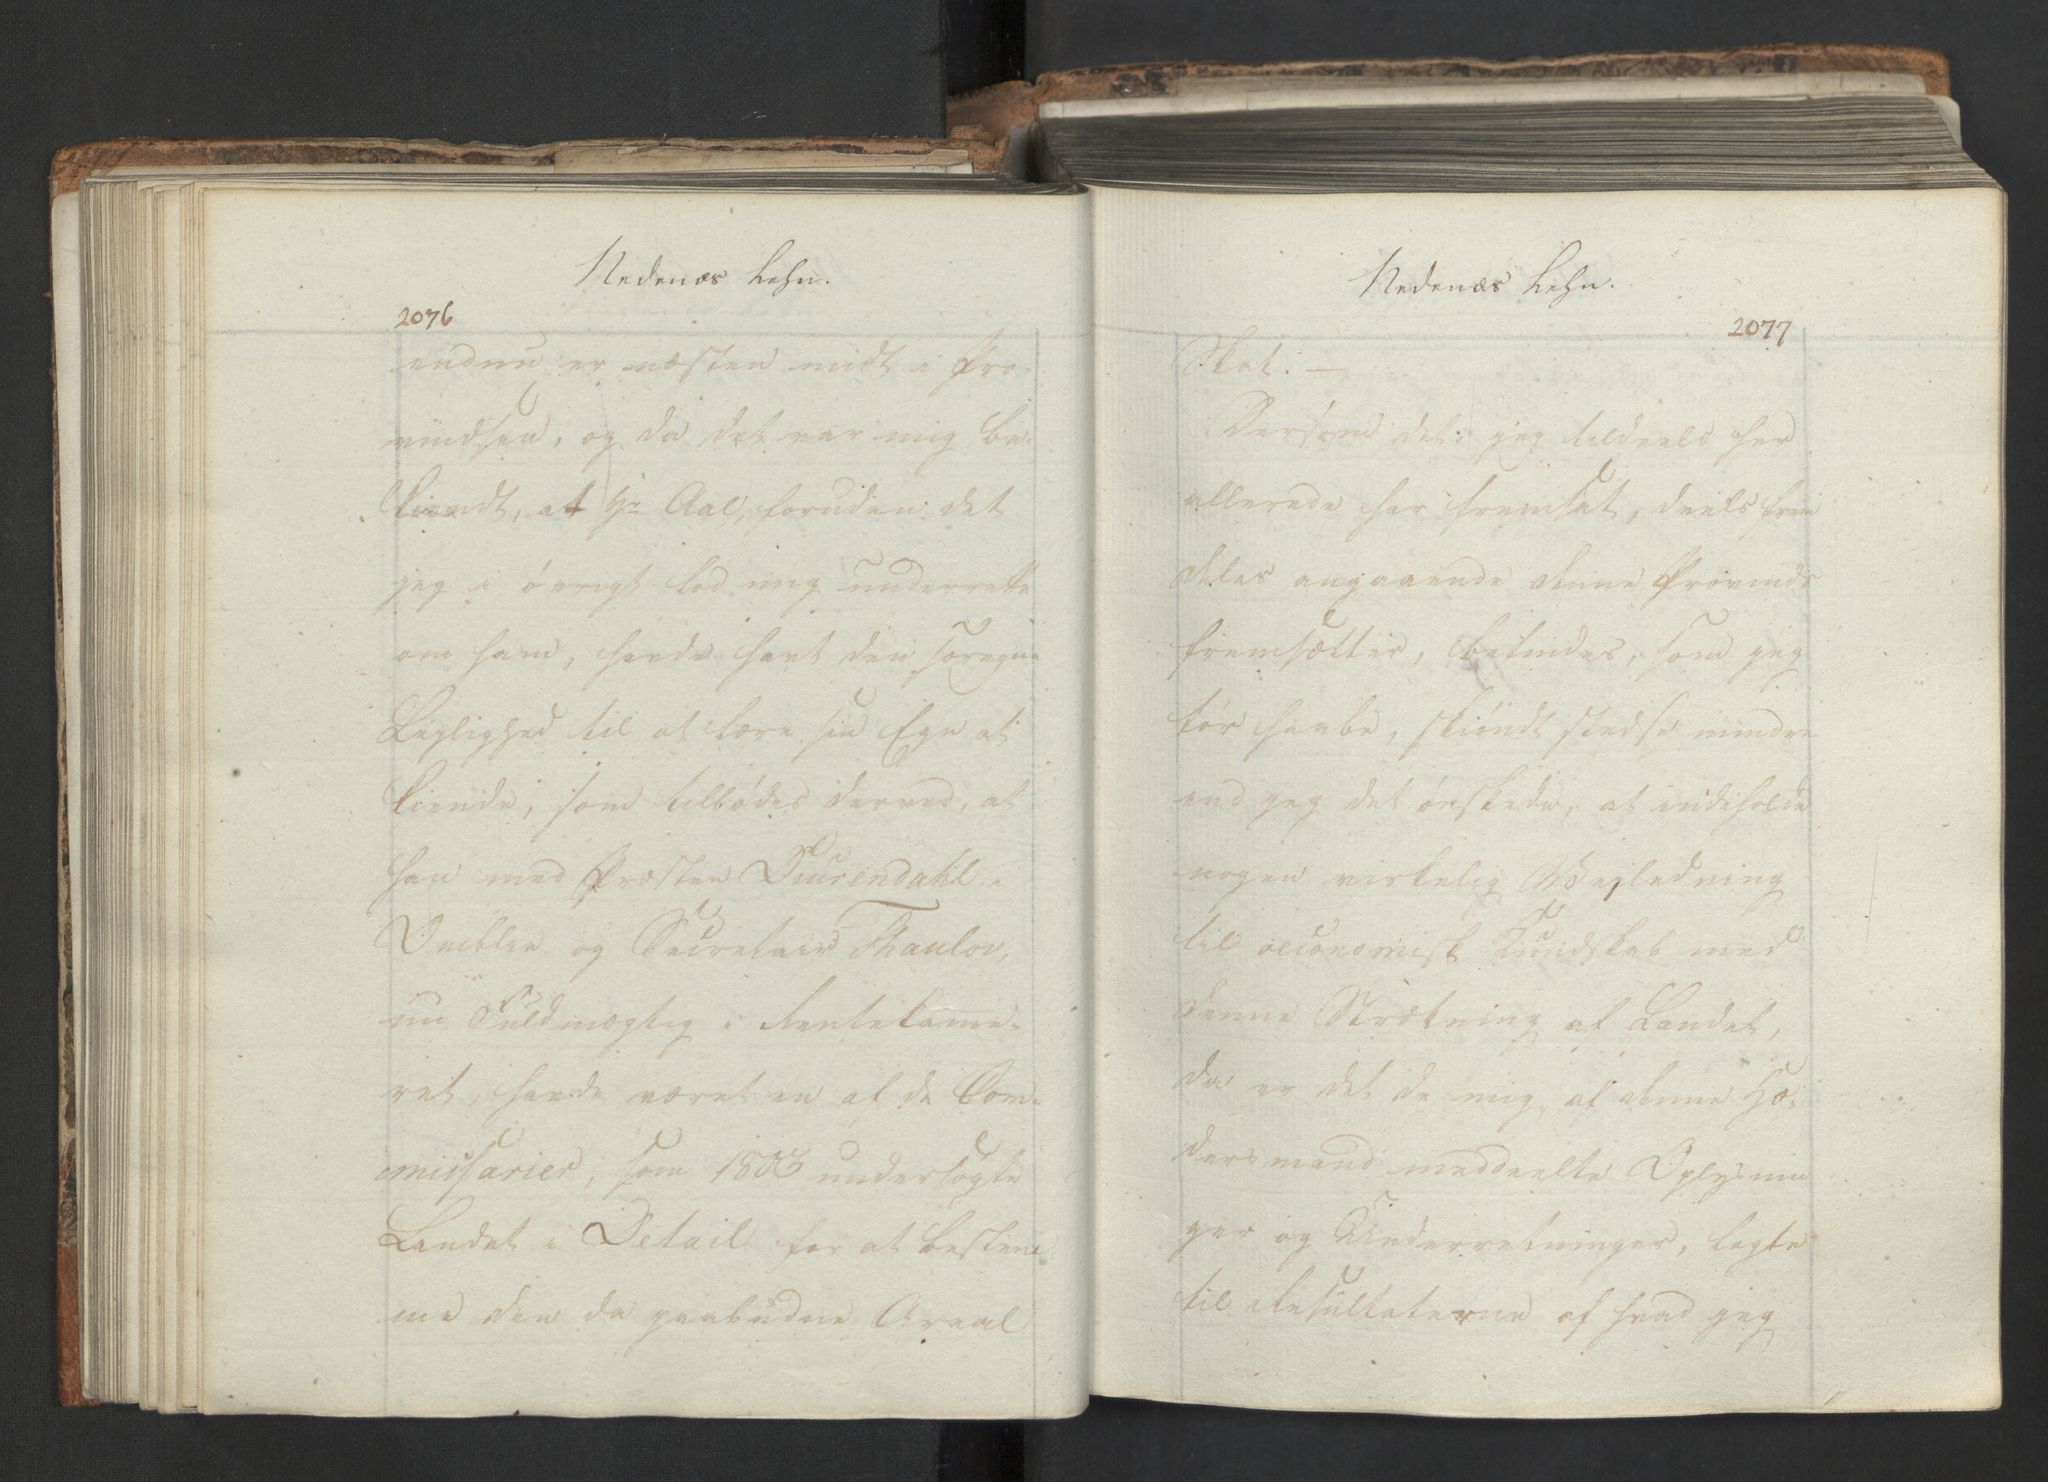 Nedenæs Lehn.
2076
endnu er næsten midt i Pro-
vindsen, og da det var mig be-
kiendt, at Hr Aal, foruden det
jeg i øvrigt lod mig underrette
om ham, havde havt den særegne
Leylighed til at lære sin Egn at
kiende, som tilbødes derved, at
han med Præsten Duurendahl i
Omblie og Secretair Thaulov,
nu Fuldmægtig i Rentekamme-
ret, havde været en af de Com-
missarier, som 1803 undersøgte
Landet i Detail for at bestem-
me den da paabudne Areal
Nedenæs Lehn.
2077
Skat. —
Dersom det jeg tildeels her
allerede har fremsat, deels frem
deles angaaende denne Provinds
fremsætter, befindes, som jeg
tør haabe, skiøndt stedse mindre
end jeg det ønskede, at indeholde
nogen virkelig Veyledning
til oeconomisk Kundskab med
denne Strækning af Landet,
da er det de mig af denne Hæ-
dersmand meddeelte Oplysnin
ger og Underretninger, lagte
til Resultaterne af hvad jeg